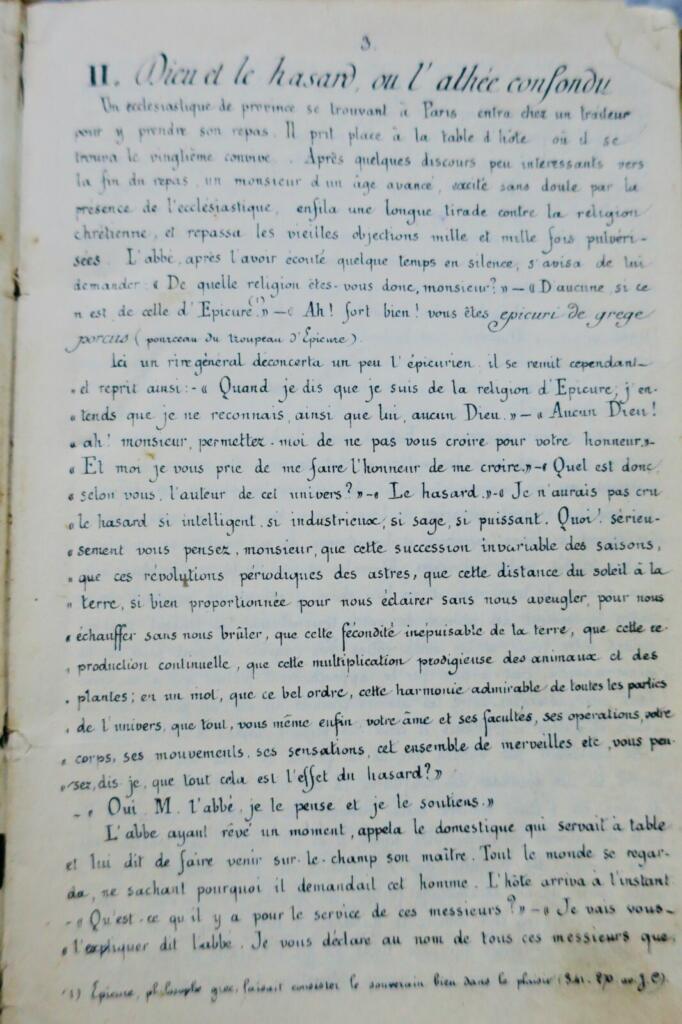 3.
II. Dieu et le hasard, ou l'athée confondu
Un ecclésiastique de province se trouvant à Paris entra chez un traiteur
pour y prendre son repas. Il prit place à la table d'hôte où il se
trouva le vingtième convive. Après quelques discours peu intéressants vers
la fin du repas, un monsieur d'un âge avancé, excité sans doute par la
présence de l'ecclésiastique, enfila une longue tirade contre la religion
chrétienne, et repassa les vieilles objections mille et mille fois pulvéri-
sées. L'abbé, après l'avoir écouté quelque temps en silence, s'avisa de lui
demander: « De quelle religion êtes-vous donc, monsieur? » — « D'aucune, si ce
n'est de celle d'Epicure (1) » — « Ah! fort bien! vous êtes epicuri de grege
porcus (pourceau du troupeau d'Epicure).
Ici un rire général déconcerta un peu l'épicurien. il se remit cependant
et reprit ainsi: - « Quand je dis que je suis de la religion d'Epicure, j'en-
« tends que je ne reconnais, ainsi que lui, aucun Dieu. » — « Aucun Dieu!
« ah! monsieur, permettez-moi de ne pas vous croire pour votre honneur »-
« Et moi je vous prie de me faire l'honneur de me croire » - « Quel est donc,
« selon vous, l'auteur de cet univers? » - « Le hasard » - « Je n'aurais pas cru
« le hasard si intelligent, si industrieux, si sage, si puissant. Quoi! sérieu-
« sement vous pensez, monsieur, que cette succession invariable des saisons,
« que ces révolutions périodiques des astres, que cette distance du soleil à la
« terre, si bien proportionnée pour nous éclairer sans nous aveugler, pour nous
« échauffer sans nous brûler, que cette fécondité inépuisable de la terre, que cette re-
« production continuelle, que cette multiplication prodigieuse des animaux et des
« plantes; en un mot, que ce bel ordre, cette harmonie admirable de toutes les parties
« de l'univers, que tout, vous même enfin, votre âme et ses facultés, ses opérations, votre
« corps, ses mouvements, ses sensations, cet ensemble de merveilles etc, vous pen-
« sez, dis je, que tout cela est l'effet du hasard? »
- « Oui M. l'abbé, je le pense et je le soutiens. »
L'abbé ayant rêvé un moment, appela le domestique qui servait à table
et lui dit de faire venir sur-le-champ son maître. Tout le monde se regar-
da, ne sachant pourquoi il demandait cet homme. L'hôte arriva à l'instant
- « Qu'est-ce qu'il y a pour le service de ces messieurs? » - « Je vais vous
« l'expliquer dit l'abbé. Je vous déclare au nom de tous ces messieurs que
(1) Epicure, philosophe grec, faisait consister le souverain bien dans le plaisir (341-270 av. J.C).